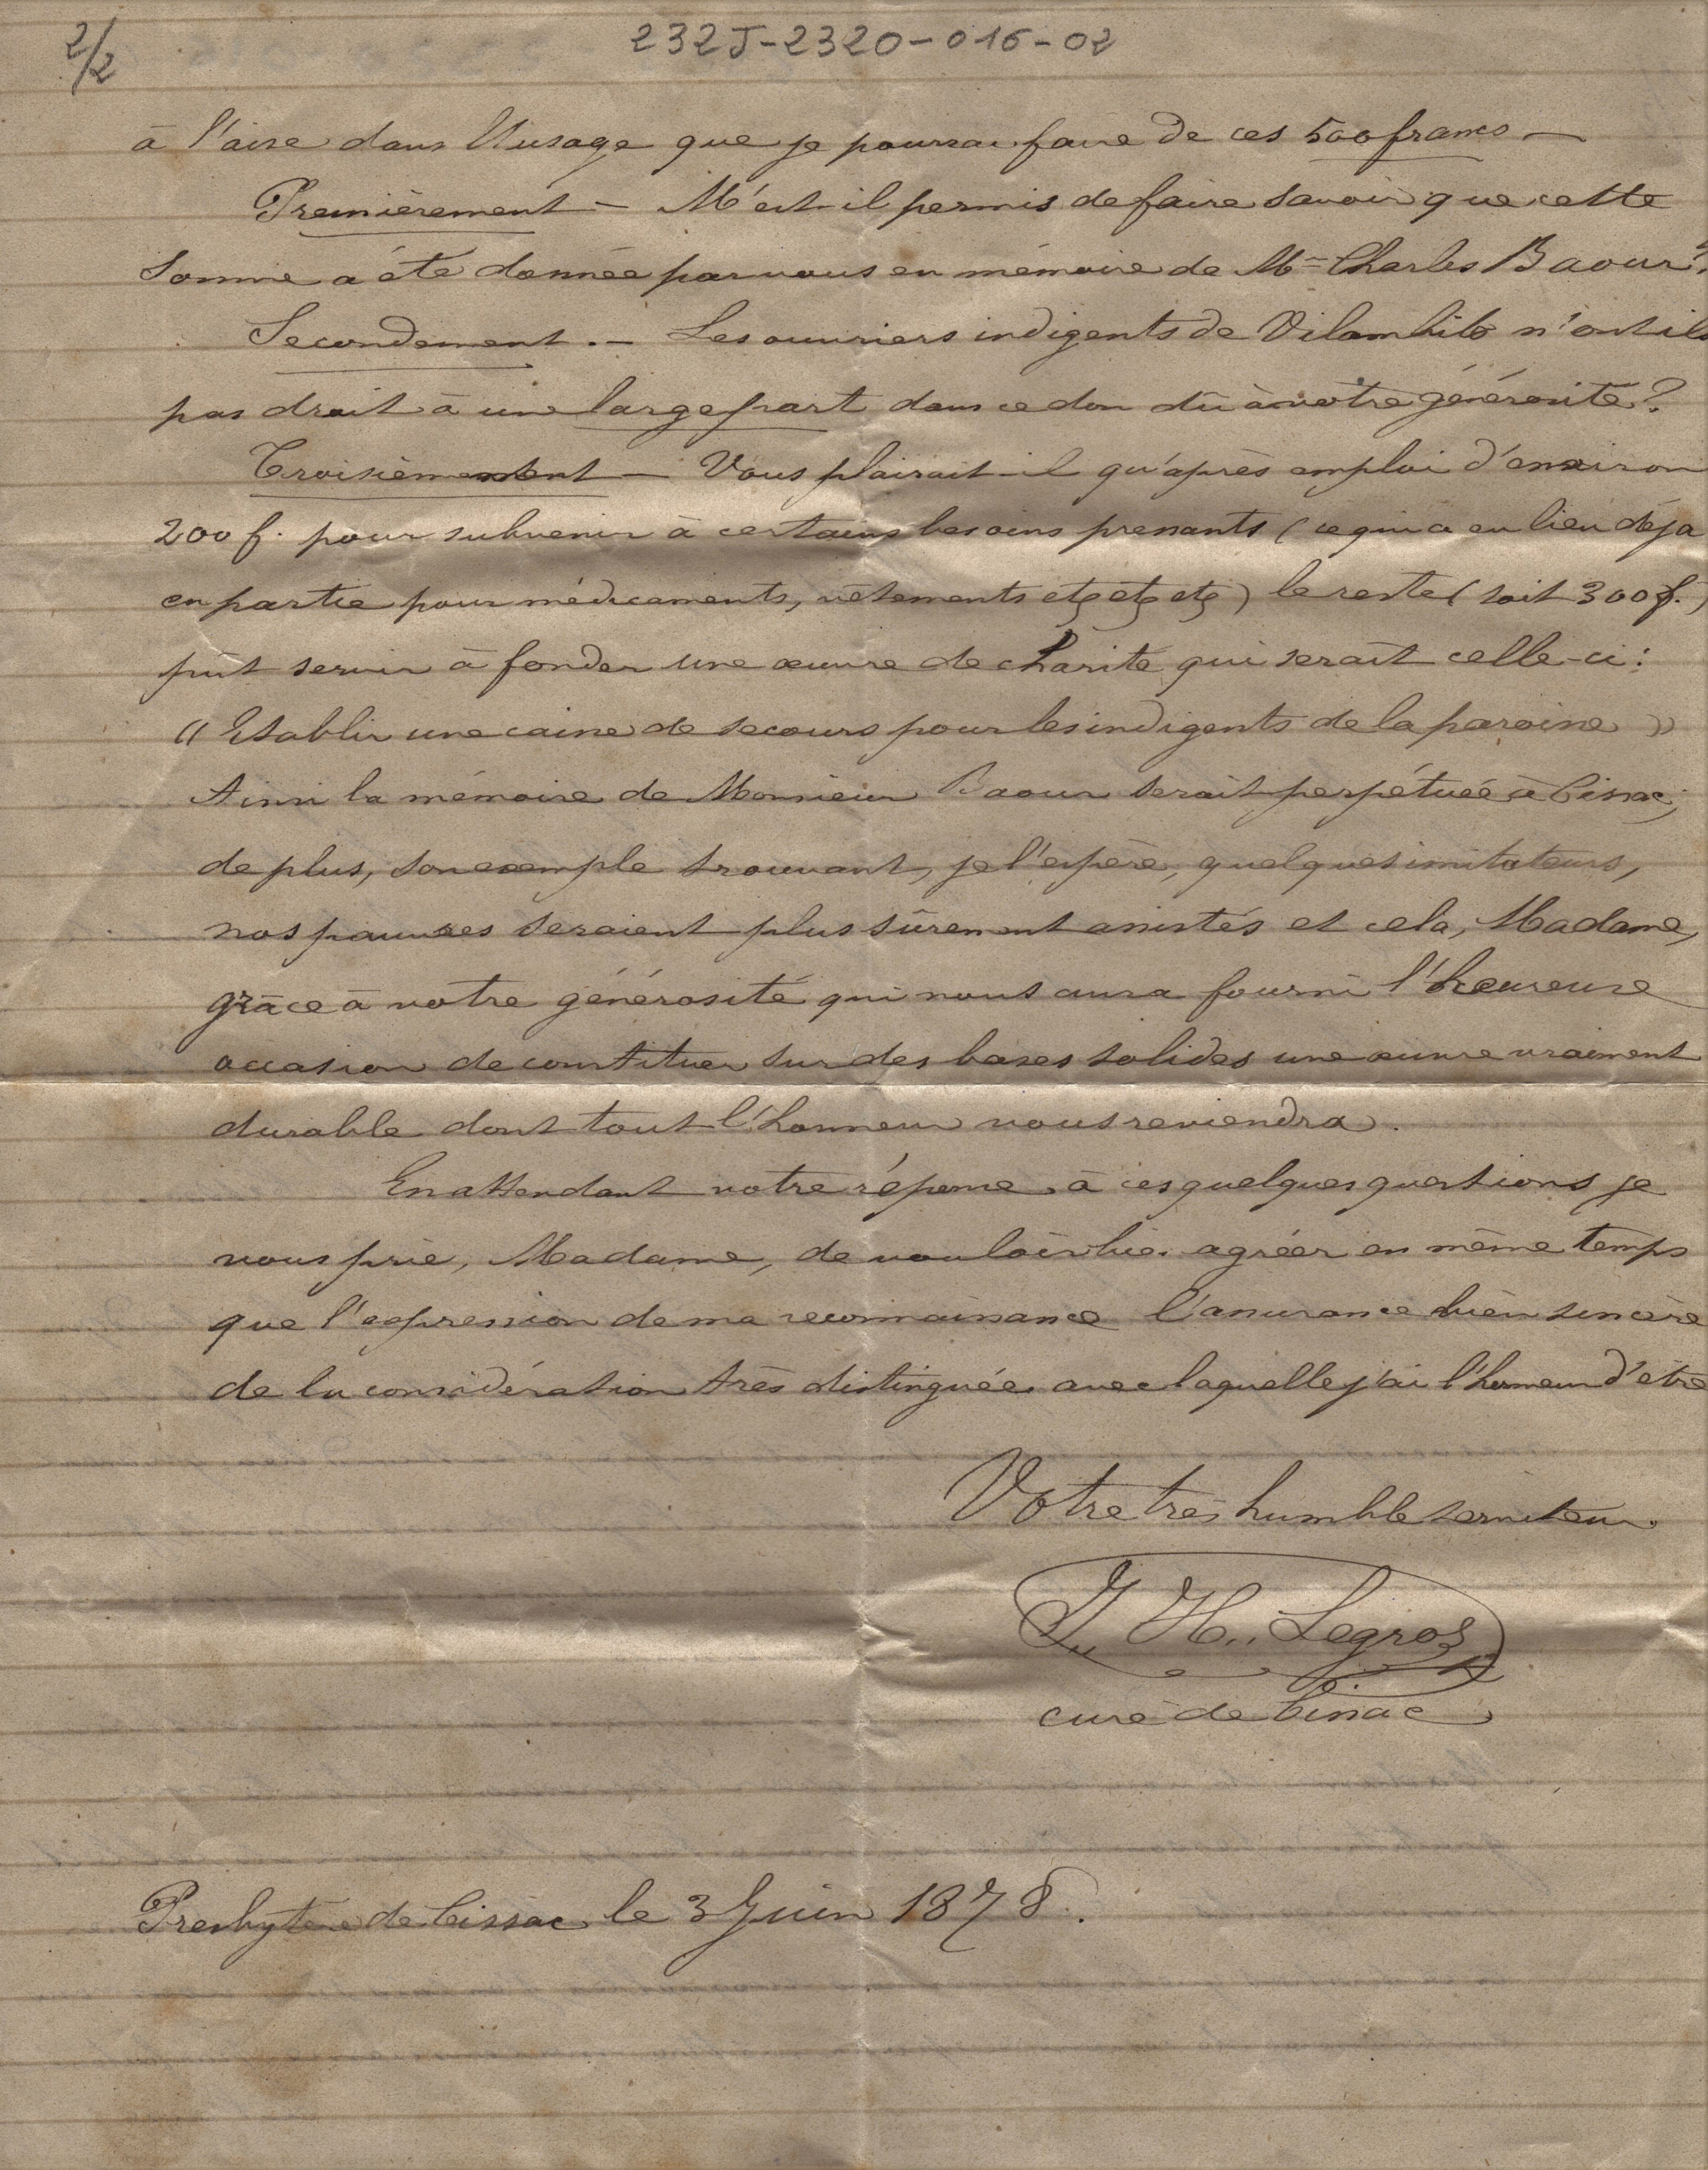 2/2
232J-2320-016-02
à l'aise dans l'usage que je pourrai faire de ces 500 francs —
Premièrement — M'est-il permis de faire savoir que cette
somme a été donnée par vous en mémoire de Mr Charles Baour?
Secondement. — Les ouvriers indigents de Vilambits n'ont ils
pas droit à une large part dans ce don dû à votre générosité?
Troisièmement — Vous plairait-il qu'après emploi d'environ
200 f. pour subvenir à certains besoins pressants (ce qui a eu lieu déjà
en partie pour médicaments, vêtements etc etc etc) le reste (soit 300 f.)
pût servir à fonder une œuvre de charité qui serait celle-ci:
« Etablir une caisse de secours pour les indigents de la paroisse »
Ainsi la mémoire de Monsieur Baour serait perpétuée à Cissac;
de plus, son exemple trouvant, je l'espère, quelques imitateurs,
nos pauvres seraient plus sûrement assistés et cela, Madame,
grâce à votre générosité qui nous aura fourni l'heureuse
occasion de constituer sur des bases solides une œuvre vraiment
durable dont tout l'honneur vous reviendra.
En attendant votre réponse à ces quelques questions je
vous prie, Madame, de vouloir bien agréer en même temps
que l'expression de ma reconnaissance l'assurance bien sincère
de la considération très distinguée avec laquelle j'ai l'honneur d'être
Votre très humble serviteur.
J. H. Legros
curé de Cissac
Presbytère de Cissac le 3 Juin 1878.